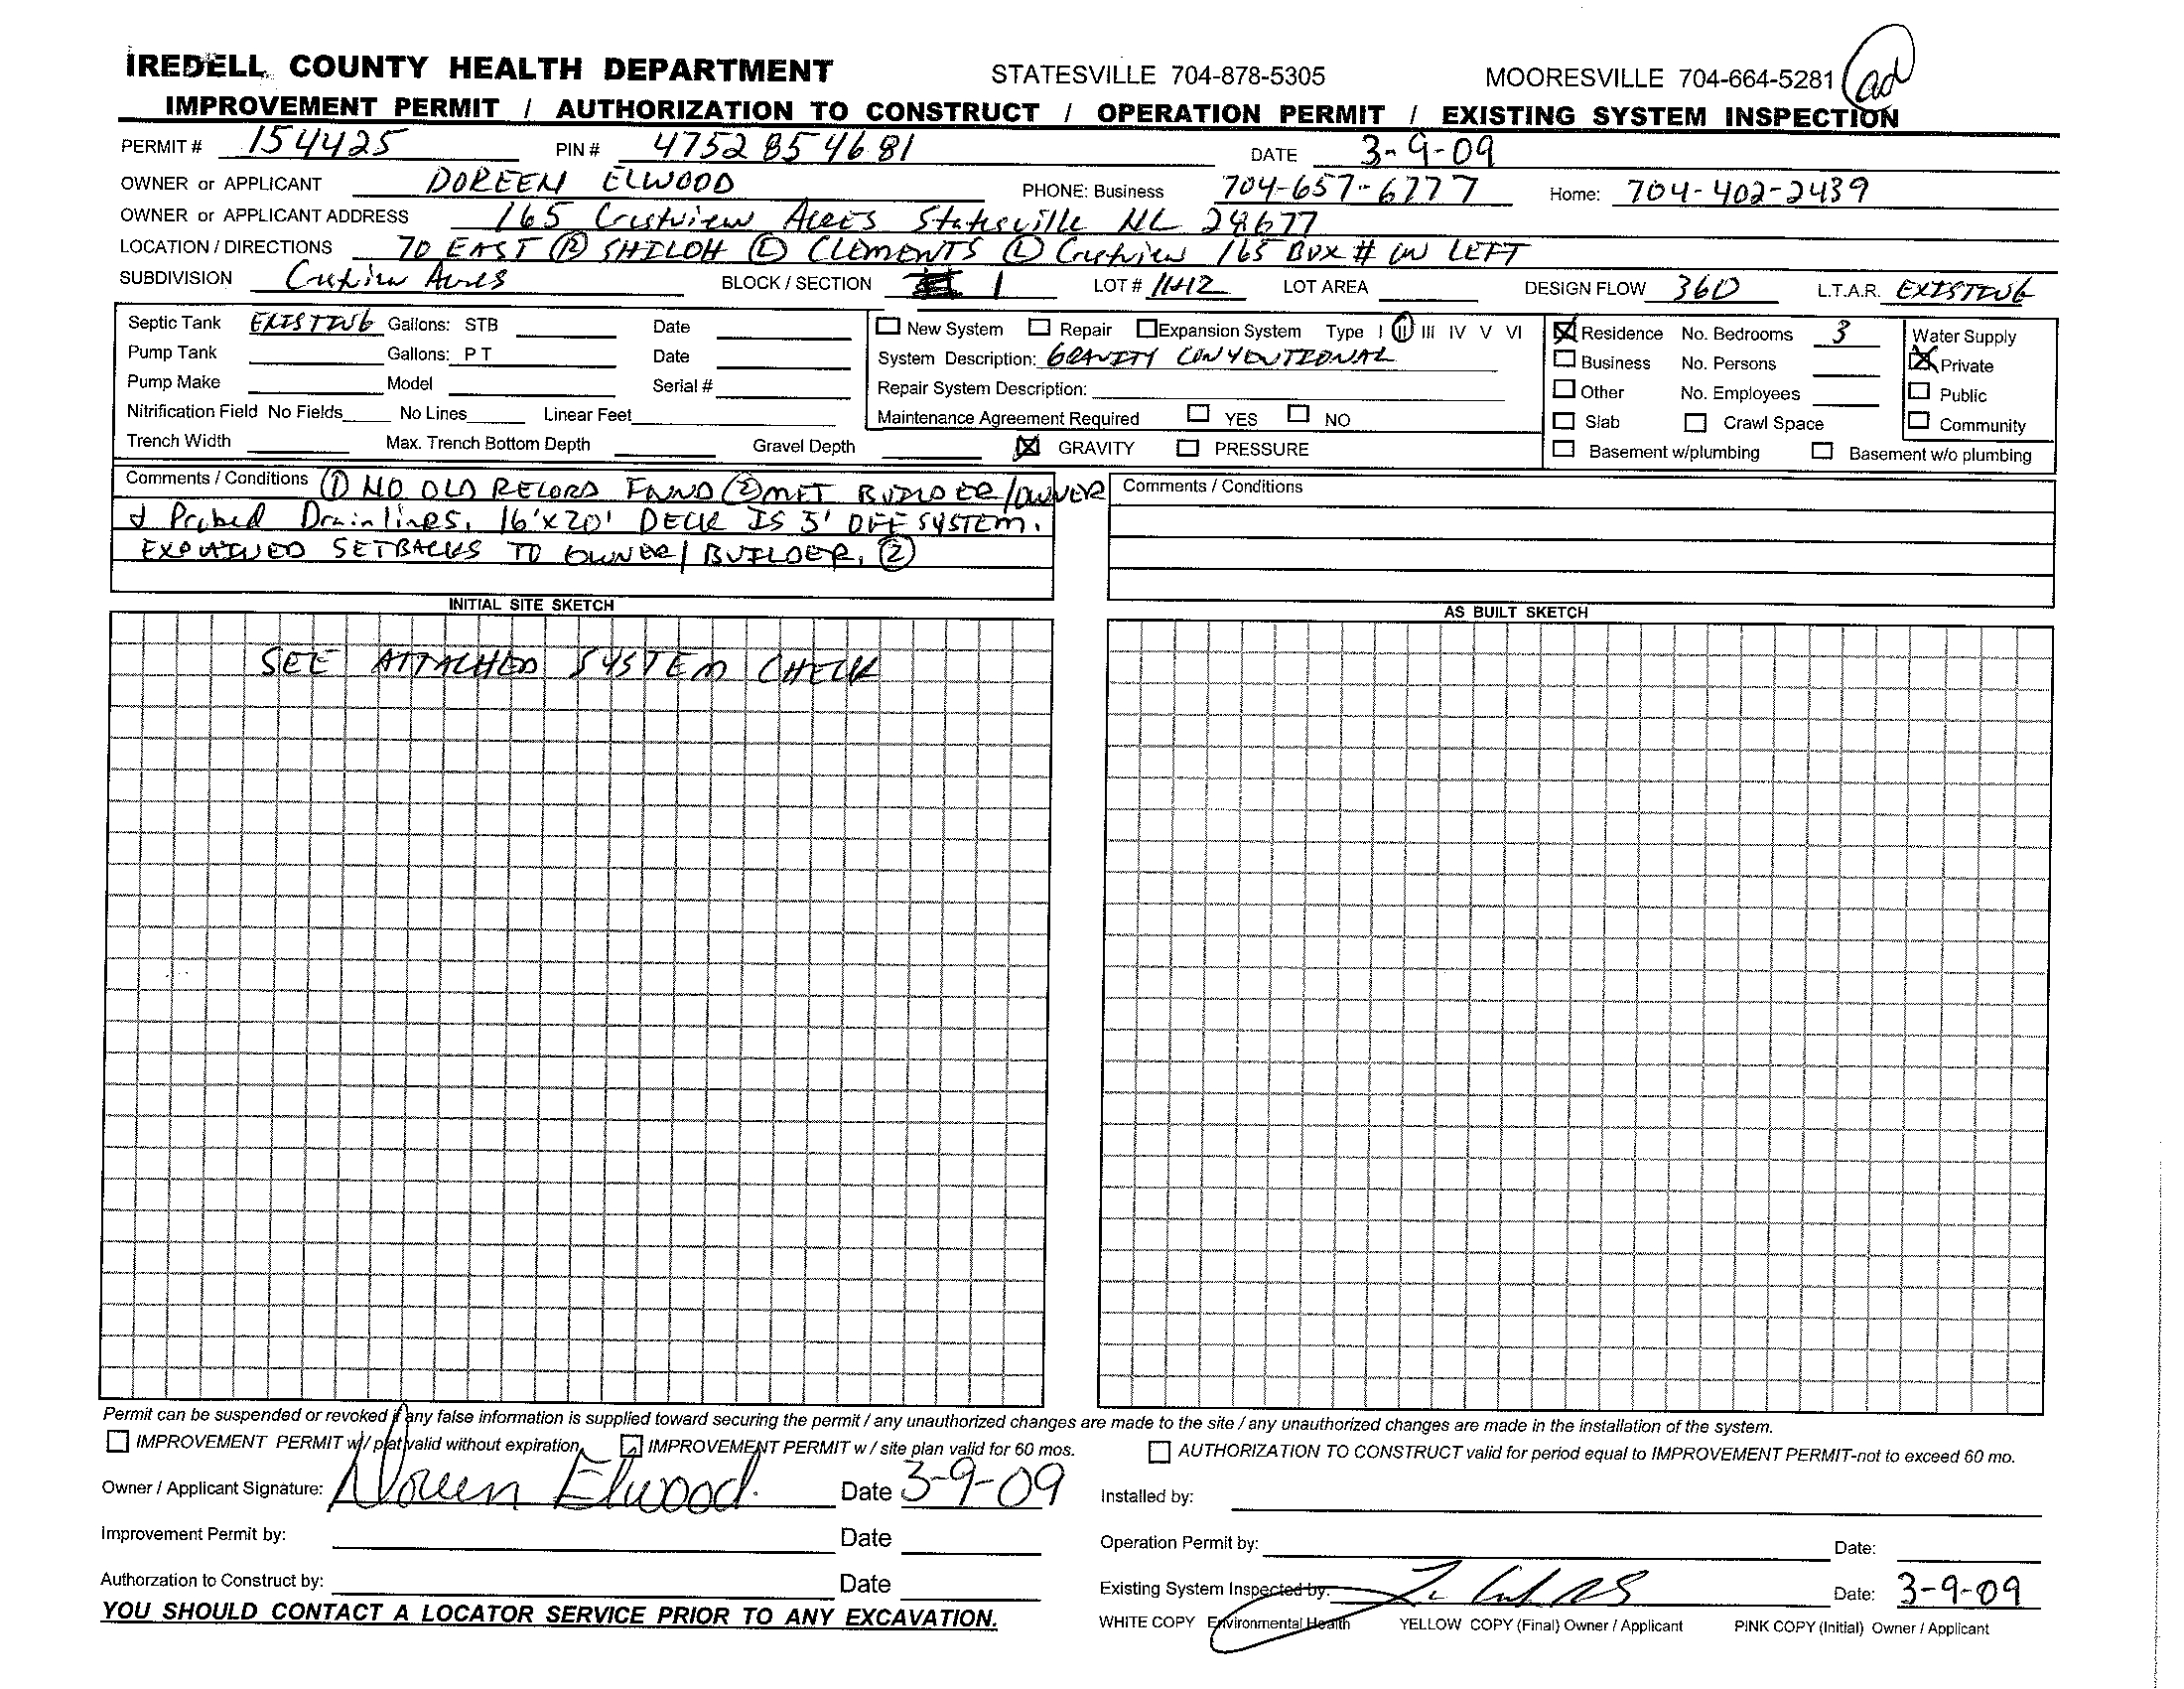 IREDELL COUNTY HEALTH DEPARTMENT STATESVILLE 704-878-5305 MOORESVILLE 704-664-5281 ad
IMPROVEMENT PERMIT / AUTHORIZATION TO CONSTRUCT / OPERATION PERMIT / EXISTING SYSTEM INSPECTION
PERMIT # 154425 PIN # 4752854681 DATE 3-9-09
OWNER or APPLICANT DOREEN ELWOOD PHONE: Business 704-657-6777 Home: 704-402-2439
OWNER or APPLICANT ADDRESS 165 Crestview Acres Statesville NC 28677
LOCATION / DIRECTIONS 70 EAST (R) SHILOH (L) CLEMENTS (L) Crestview 165 BOX # ON LEFT
SUBDIVISION Crestview Acres BLOCK / SECTION 1 LOT # 11+12 LOT AREA DESIGN FLOW 360 L.T.A.R. EXISTING
Septic Tank EXISTING Gallons: STB Date New System Repair Expansion System Type I II III IV V VI Residence No. Bedrooms 3 Water Supply
Pump Tank Gallons: P T Date System Description: GRAVITY CONVENTIONAL Business No. Persons Private
Pump Make Model Serial # Repair System Description: Other No. Employees Public
Nitrification Field No Fields No Lines Linear Feet Maintenance Agreement Required YES NO Slab Crawl Space Community
Trench Width Max. Trench Bottom Depth Gravel Depth GRAVITY PRESSURE Basement w/plumbing Basement w/o plumbing
Comments / Conditions (1) NO OLD RECORD FOUND (2) MET BUILDER/OWNER Comments / Conditions
& Probed Drainlines. 16'x20' DECK IS 5' OFF SYSTEM.
EXPLAINED SETBACKS TO OWNER/BUILDER. (2)
INITIAL SITE SKETCH AS BUILT SKETCH
SEE ATTACHED SYSTEM CHECK
Permit can be suspended or revoked if any false information is supplied toward securing the permit / any unauthorized changes are made to the site / any unauthorized changes are made in the installation of the system.
IMPROVEMENT PERMIT w/ plat valid without expiration IMPROVEMENT PERMIT w / site plan valid for 60 mos. AUTHORIZATION TO CONSTRUCT valid for period equal to IMPROVEMENT PERMIT-not to exceed 60 mo.
Owner / Applicant Signature: Doreen Elwood Date 3-9-09 Installed by:
Improvement Permit by: Date Operation Permit by: Date:
Authorzation to Construct by: Date Existing System Inspected by: RS Date: 3-9-09
YOU SHOULD CONTACT A LOCATOR SERVICE PRIOR TO ANY EXCAVATION. WHITE COPY Environmental Health YELLOW COPY (Final) Owner / Applicant PINK COPY (Initial) Owner / Applicant